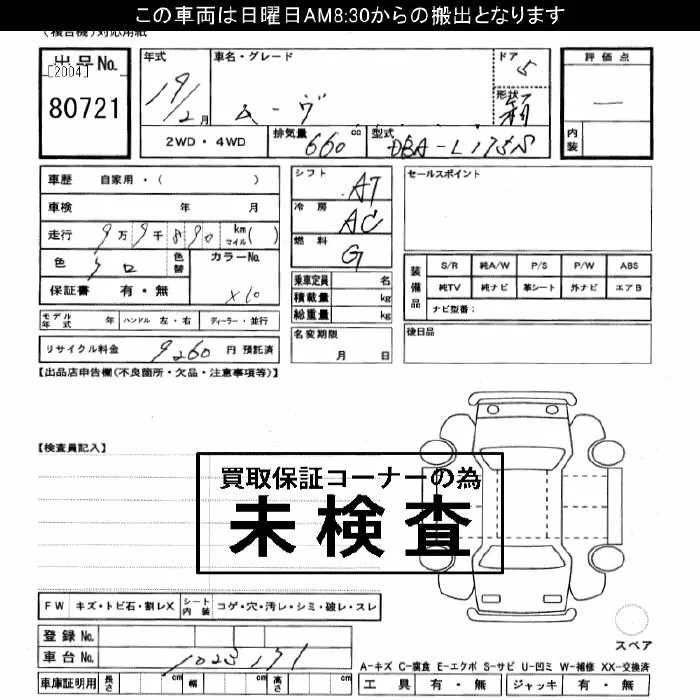 この車両は日曜日AM8:30からの搬出となります
出品No.
[2004]
80721
年式
19/2月
車名・グレード
ムーヴ
ドア
5
形状
評価点
—
内装
2WD・4WD
排気量 660 cc
型式 DBA-L175S
車歴 自家用・( )
車検 年 月
走行 9万9千890 km マイル( )
色 シロ
色替
カラーNo.
X10
保証書 有・無
シフト AT
冷房 AC
燃料 G
乗車定員 名
積載量 kg
総重量 kg
セールスポイント
装備品
S/R 純A/W P/S P/W ABS
純TV 純ナビ 革シート 外ナビ エアB
ナビ型番:
モデル年式 年 ハンドル 左・右 ディーラー・並行
名変期限 月 日
後日品
リサイクル料金 9260 円 預託済
【出品店申告欄(不良箇所・欠品・注意事項等)】
【検査員記入】
買取保証コーナーの為
未検査
FW キズ・トビ石・割レX シート内装 コゲ・穴・汚レ・シミ・破レ・スレ
登録No.
車台No. 1023171
車庫証明用 長さ cm 幅 cm 高さ cm
スペア
A-キズ C-腐食 E-エクボ S-サビ U-凹ミ W-補修 XX-交換済
工具 有・無 ジャッキ 有・無